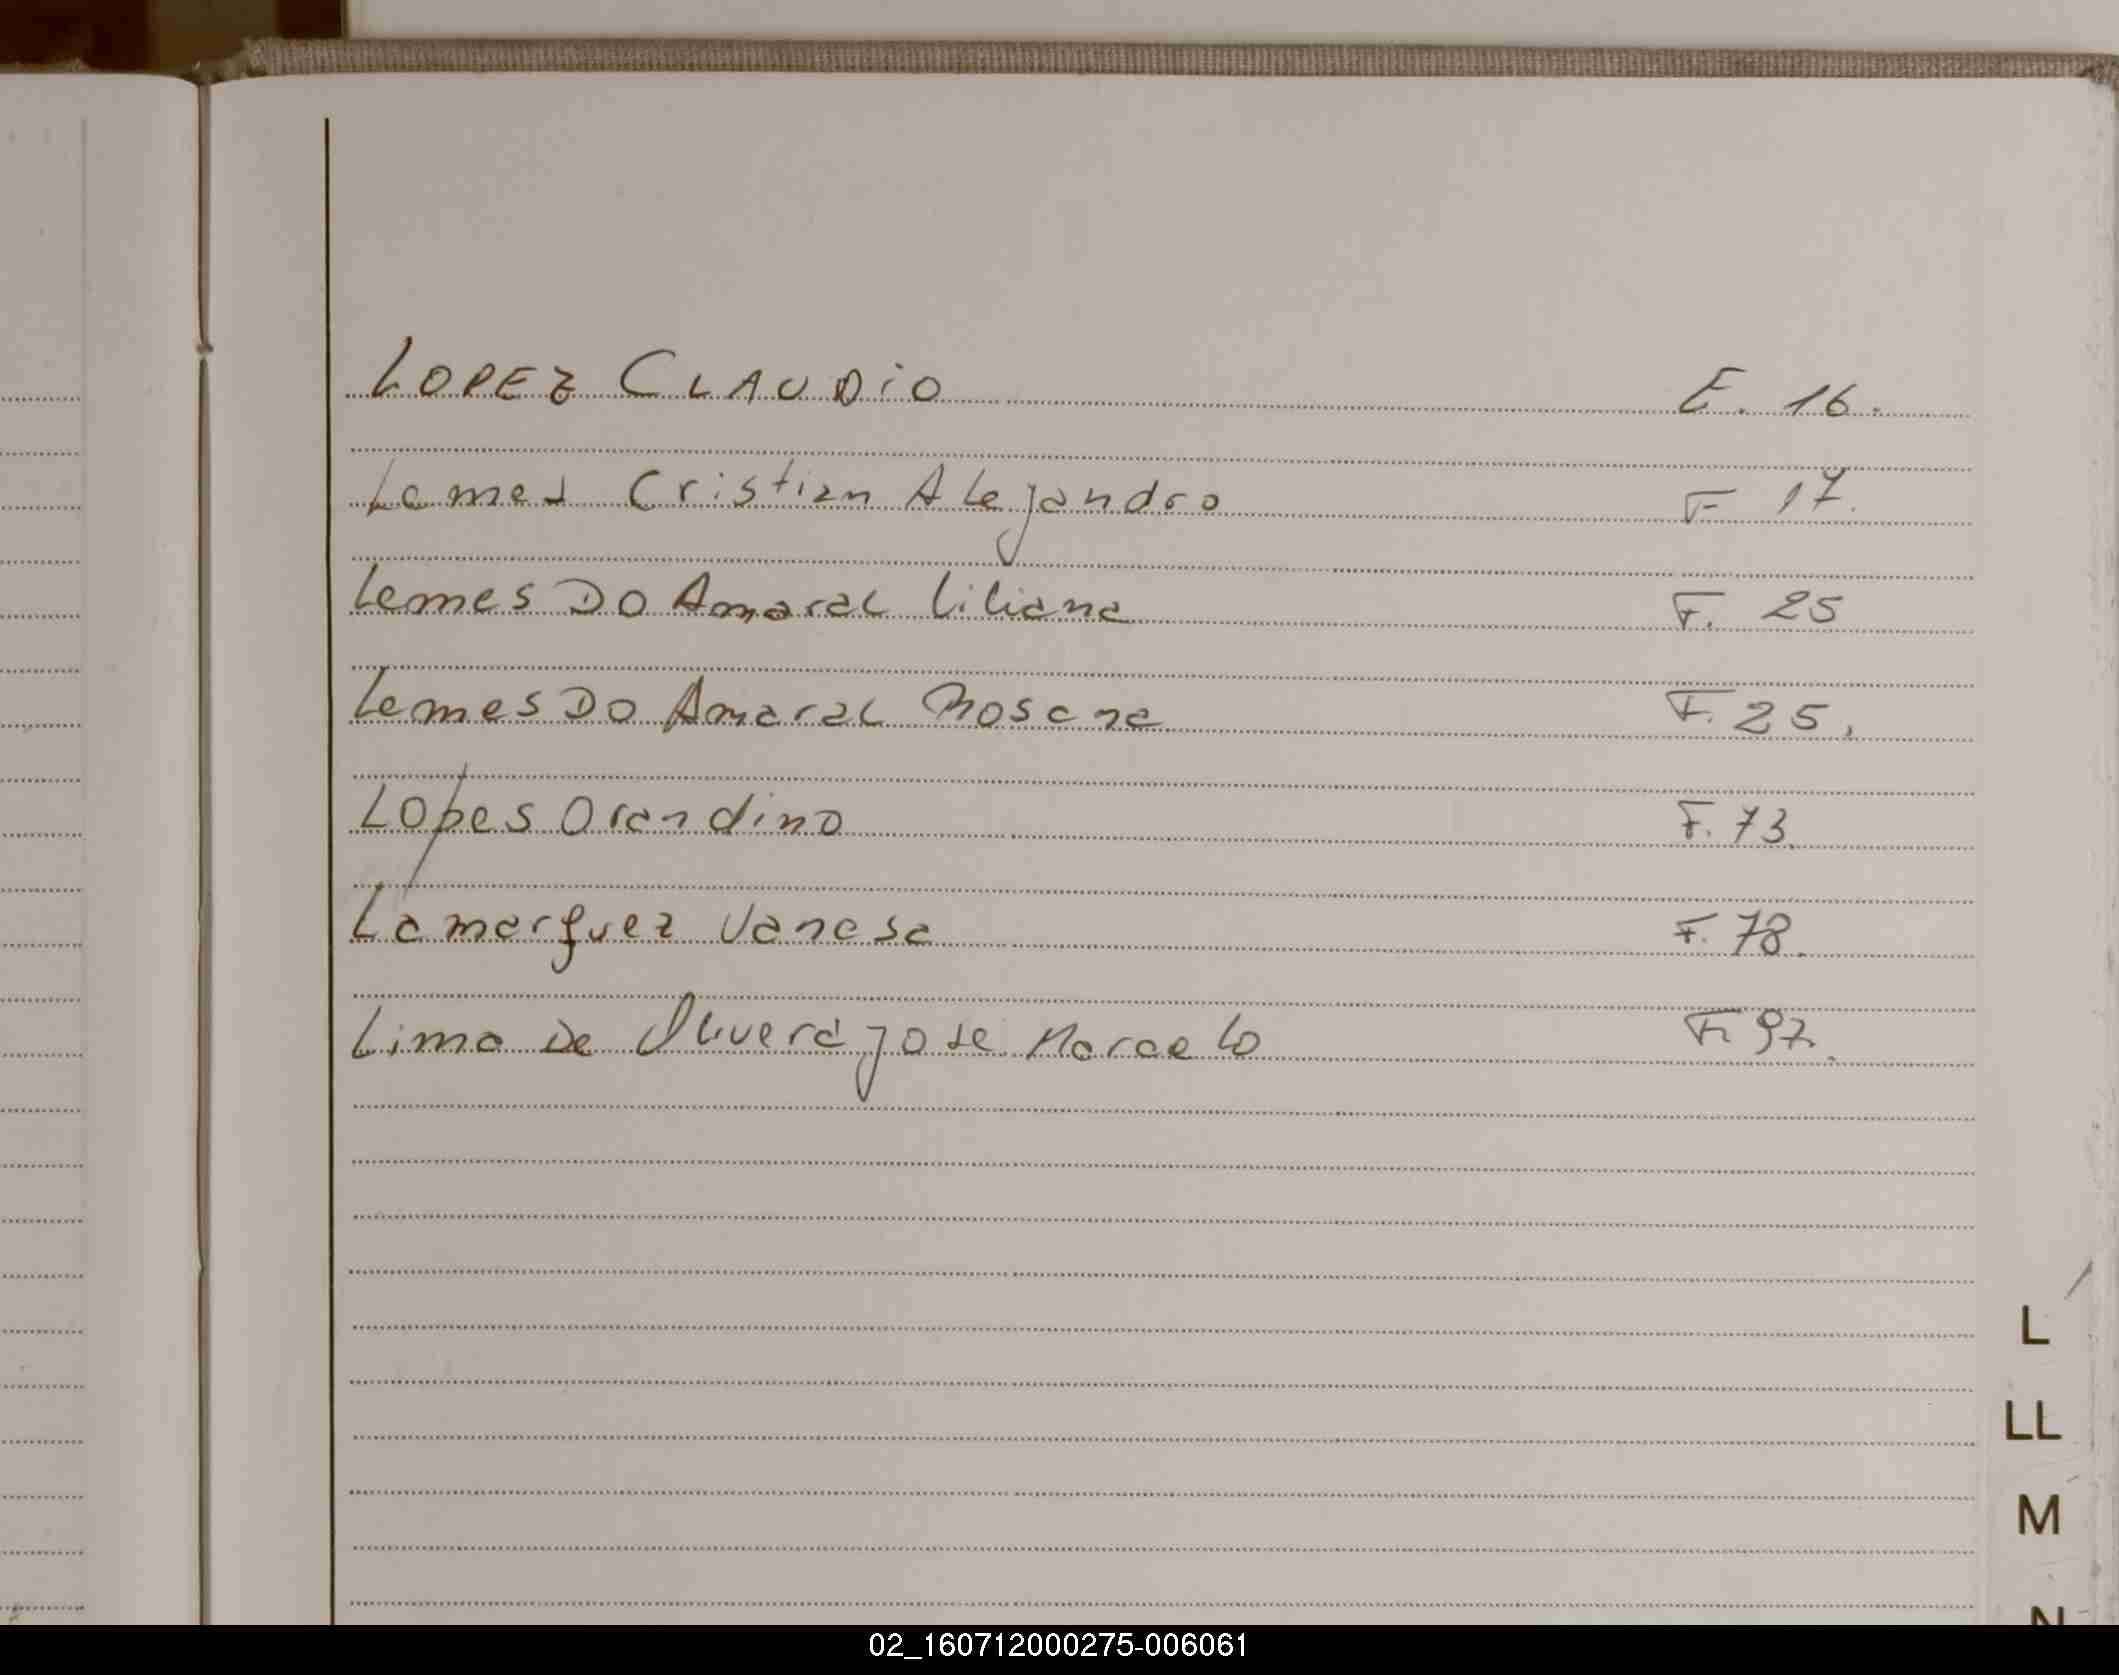 LOPEZ CLAUDIO F. 16.
Lames Cristian Alejandro F 17.
Lemes Do Amaral Liliana F. 25
Lemes Do Amaral Rosana F. 25.
Lopes Orandino F. 73.
Lamarquez Vanesa F. 78.
Lima De Olivera Jose Marcelo F. 97.
L
LL
M
N
02_160712000275-006061